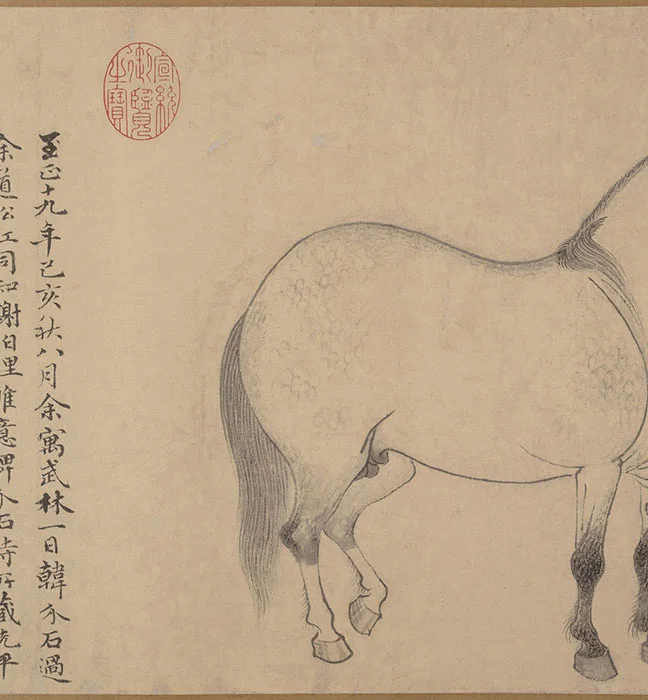 宣統
御覽
之寶
至正十九年己亥秋八月余寓武林一日韓介石過
余道松江同知謝伯理雅意俾介石持所藏先平